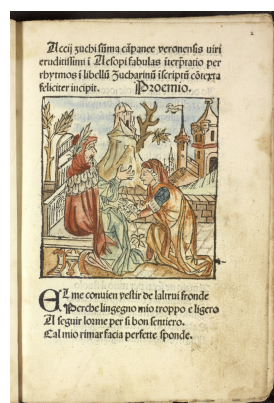 2
Accij zuchi sūma cāpanee veronensis uiri
eruditissimi i Aesopi fabulas iterp̄ratio per
rhytmos i libellū Zucharinū iscriptū cōtexta
feliciter incipit. Proemio.
EL me conuien vestir de laltrui fronde
Perche lingegno mio troppo e ligero
A seguir lorme per si bon sentiero.
Cal mio rimar facia perfette sponde.